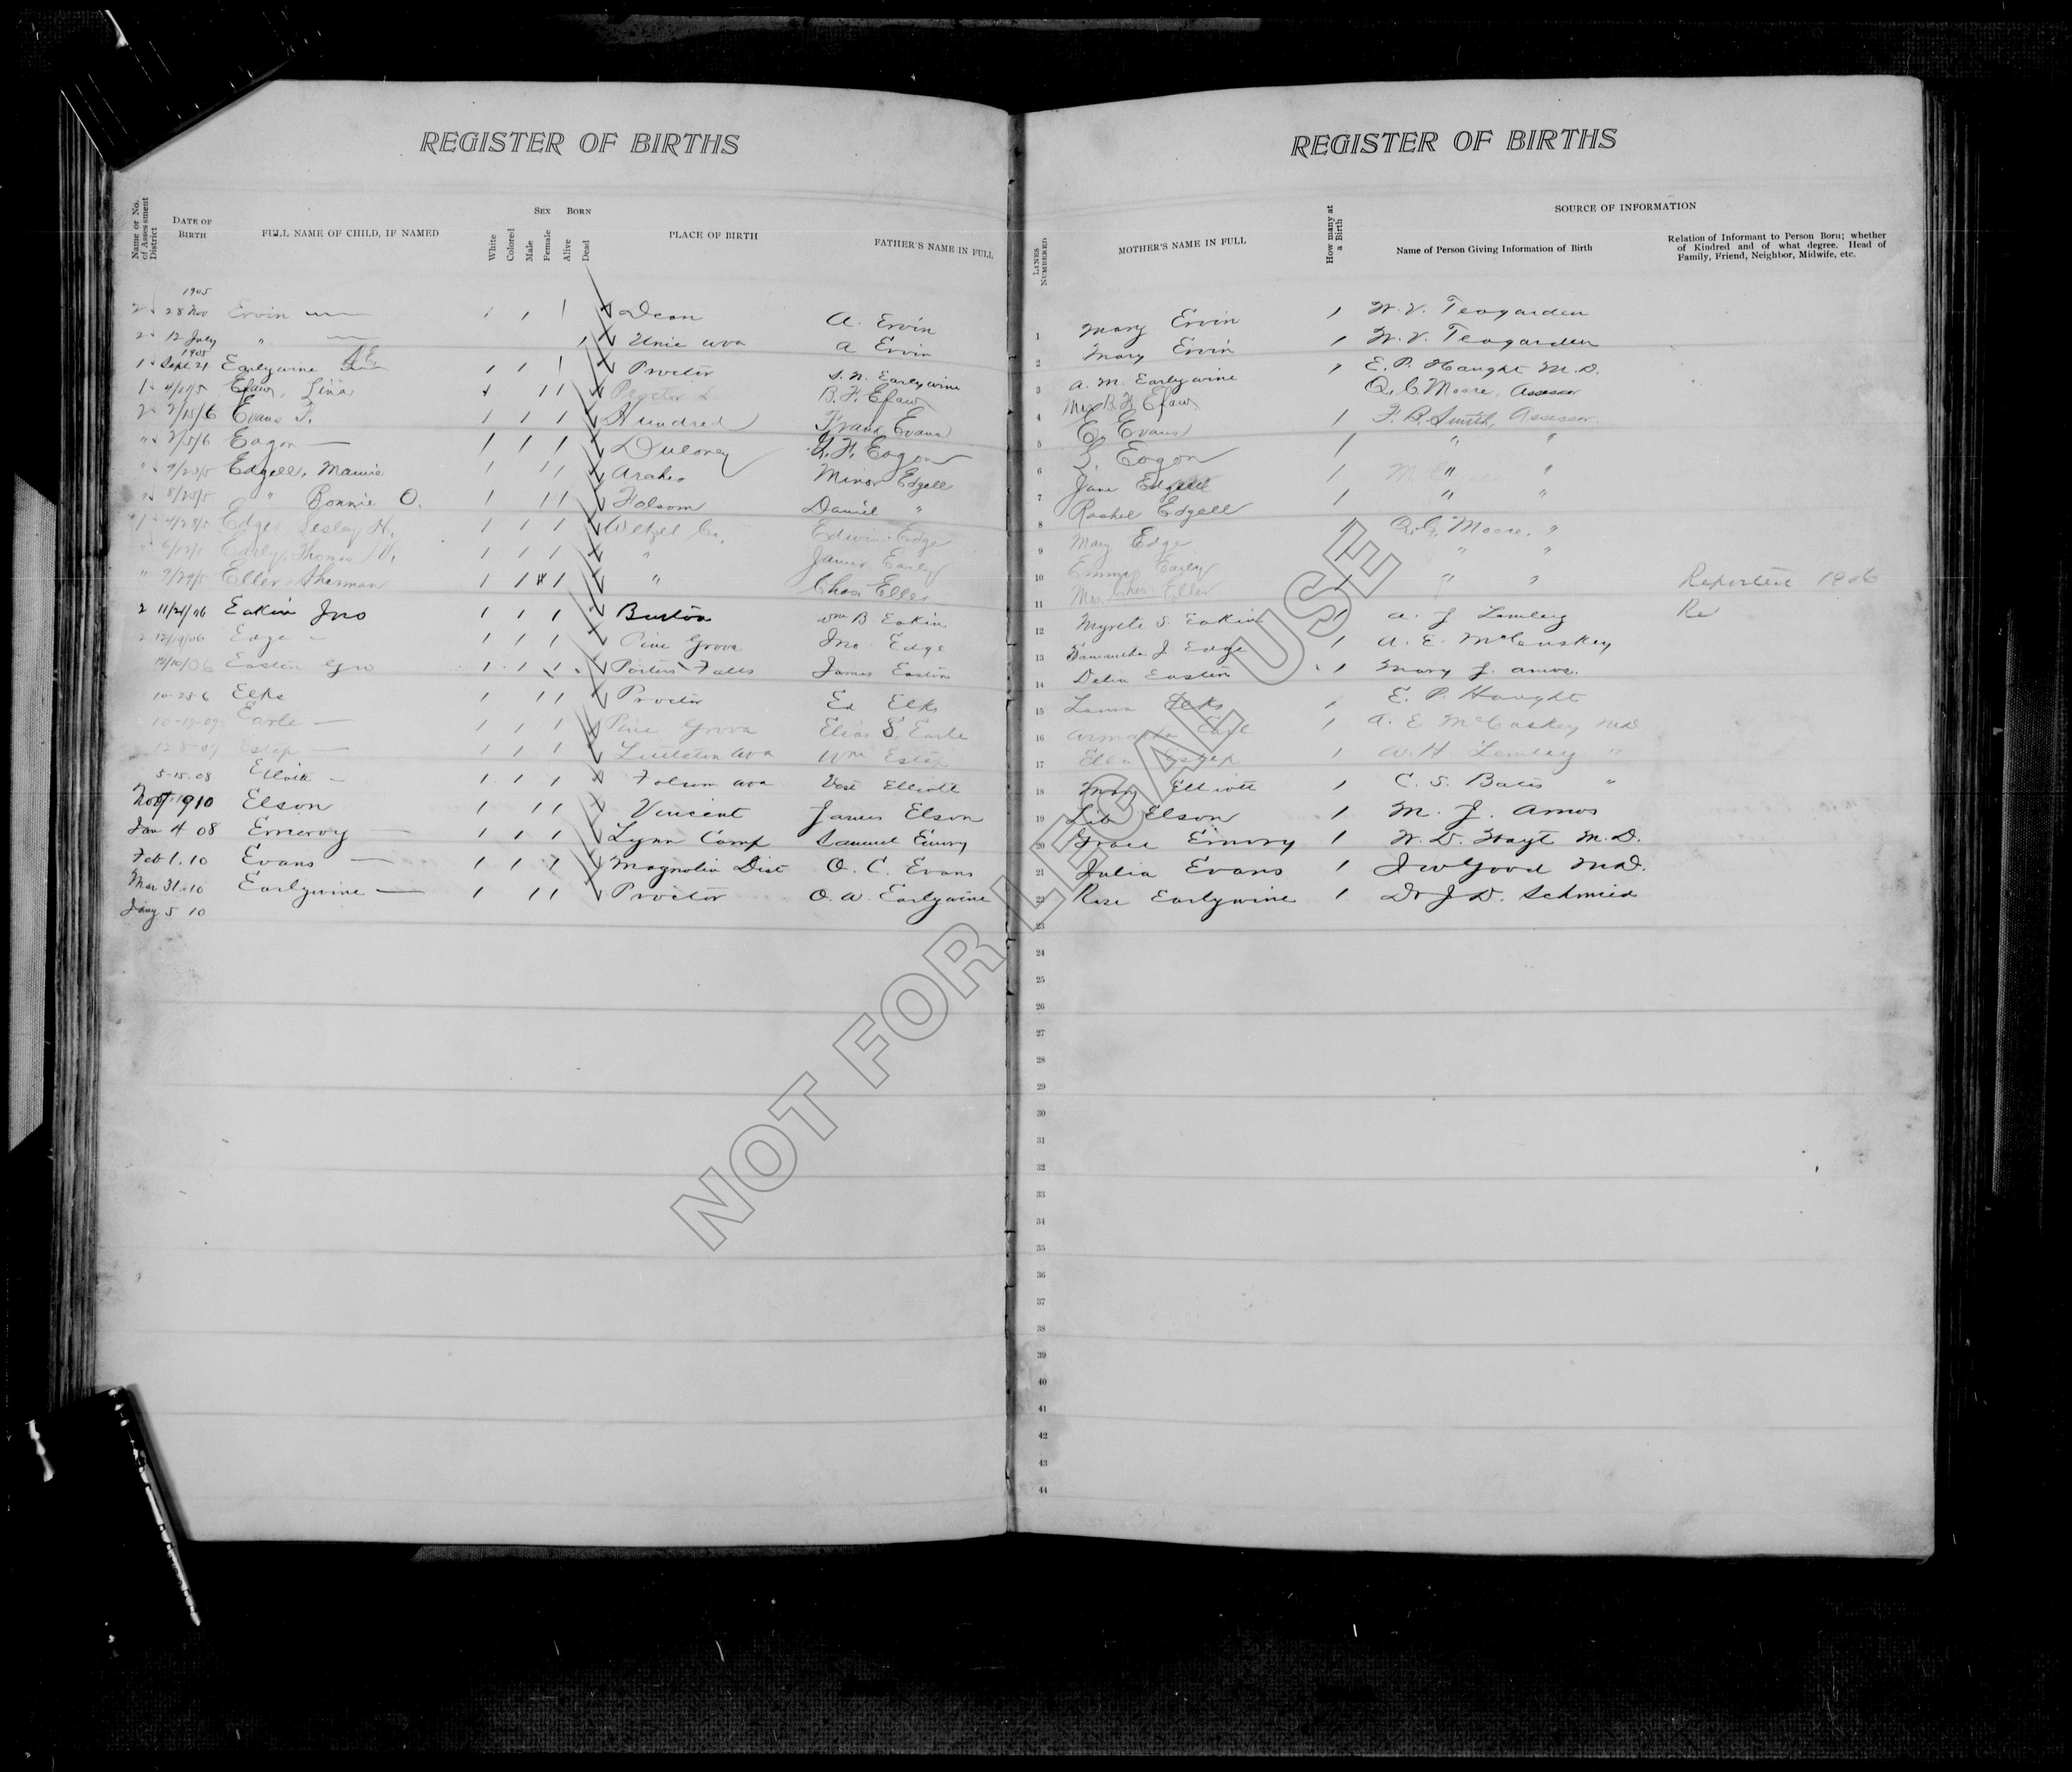 REGISTER OF BIRTHS
Name or No. of Assessment District
DATE OF BIRTH
FULL NAME OF CHILD, IF NAMED
White
Colored
SEX
Male
Female
BORN
Alive
Dead
PLACE OF BIRTH
FATHER'S NAME IN FULL
1905
2 28 Nov Ervin Dean A. Ervin
2 12 July " A Ervin
1905
1 Sept 21 Earlywine Proctor S. N. Earlywine
1 4/11/5 Efaw, Lina Proctor B. F. Efaw
2 2/15/6 Evans F. Hundred Frank Evans
" 2/5/6 Eagon Eagon
" 9/25/5 Edgell, Mamie Arches Minor Edgell
8/25/5 " Bonnie O. Folsom Daniel "
1 4/29/5 Edge, Lesley H. Wetzel Co. Edwin Edge
Early, Thomas " James Early
" 9/29/5 Eller, Sherman " Chas Eller
2 11/21/06 Eakin Jno Burton Wm B. Eakin
2 12/19/06 Edge Pine Grove Jno. Edge
Easton Porters Falls James Easton
10-25-6 Elks Proctor Ed Elks
10-19-07 Earle Pine Grove Elias S. Earle
12-8-07 Estep Littleton WVa Wm Estep
5-15-08 Elliott Folsom WVa Vest Elliott
1910 Elson Vincent James Elson
Jan 4 08 Emeroy Lynn Camp Samuel Emory
Feb 1. 10 Evans Magnolia Dist O. C. Evans
Mar 31-10 Earlywine Proctor O. W. Earlywine
Jany 5 10
REGISTER OF BIRTHS
LINES NUMBERED
MOTHER'S NAME IN FULL
How many at a Birth
SOURCE OF INFORMATION
Name of Person Giving Information of Birth
Relation of Informant to Person Born; whether
of Kindred and of what degree. Head of
Family, Friend, Neighbor, Midwife, etc.
1 Mary Ervin 1 W. V. Teagarden
2 Mary Ervin 1 W. V. Teagarden
3 A. M. Earlywine 1 E. P. Haught M.D.
4 Mrs B. F. Efaw Moore, Assessor
5 E. Evans 1 F. B. Smith, Assessor
6 Eagon 1 " "
7 Jane Edgell 1 " "
8 Rachel Edgell 1 " "
9 Mary Edge 1 Moore, "
10 Emma Early " "
11 Mrs. Chas. Eller 1 " " Reported 1906
12 Myrtle S. Eakin 1 A. J. Lemley Re
13 Samantha J Edge 1 A. E. McCuskey
14 Delia Easton 1 Mary J. Amos.
15 Laura Elks 1 E. P. Haught
16 Earl 1 A. E. McCuskey MD.
17 Ella Estep 1 W. H Lemley "
18 Mary Elliott 1 C. S. Bates "
19 Lib Elson 1 M. J. Amos
20 Grace Emory 1 W. D. Hoyt M.D.
21 Julia Evans 1 J W Good MD.
22 Rose Earlywine 1 Dr J D. Schmied
23
24
25
26
27
28
29
30
31
32
33
34
35
36
37
38
39
40
41
42
43
44
NOT FOR LEGAL USE